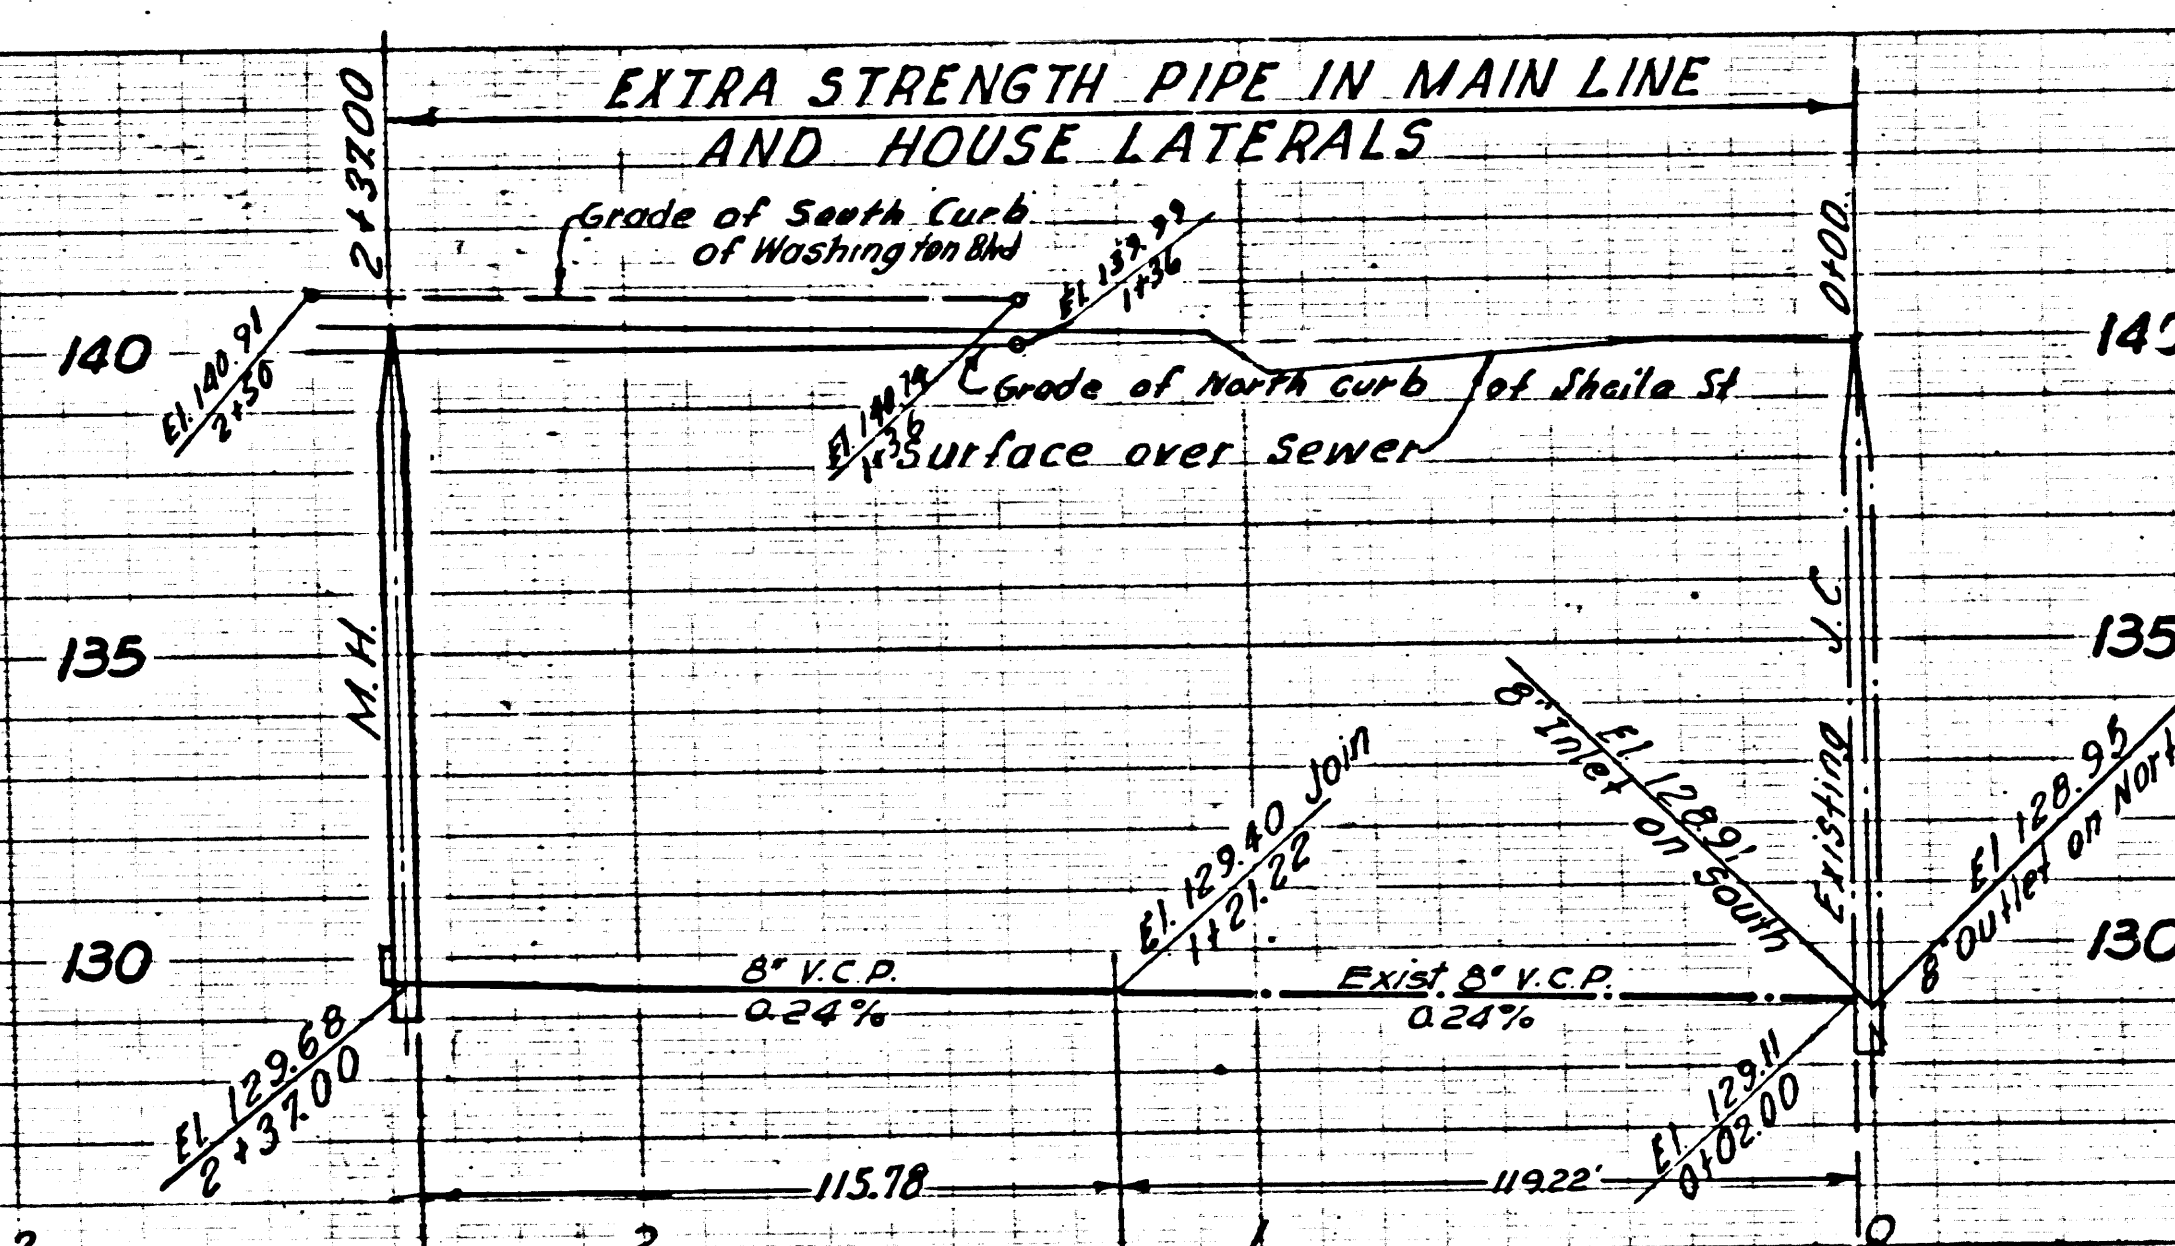 EXTRA STRENGTH PIPE IN MAIN LINE
AND HOUSE LATERALS
2+37.00
0+00.
Grade of South Curb
of Washington Blvd
El. 139.99
1+36
El. 140.91
2+50
140
140
El. 140.74
1+36
Grade of North curb of Sheila St
Surface over Sewer
135
135
M.H.
Existing J.C.
8" Inlet on South
El. 128.9
El 128.95
8" Outlet on Nort
El. 129.40 Join
1+21.22
130
130
8" V.C.P.
0.24%
Exist 8" V.C.P.
0.24%
El. 129.68
2+37.00
El. 129.11
0+02.00
115.78
119.22'
3
2
1
0